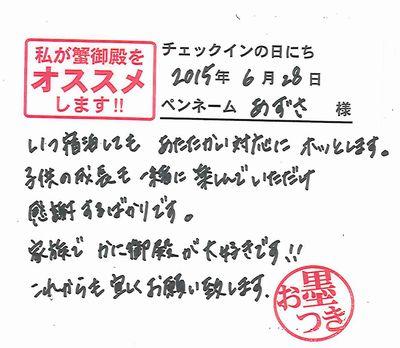 私が蟹御殿を
オススメ
します!!
チェックインの日にち
2015年 6月 28日
ペンネーム あずさ 様
いつ宿泊しても あたたかい対応に ホッとします。
子供の成長も 一緒に 楽しんでいただけ
感謝するばかりです。
家族で かに御殿が 大好きです!!
これからも 宜しくお願い致します.
お墨つき